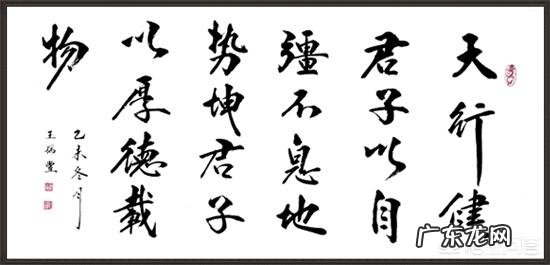 天行健
君子以自
彊不息地
势坤君子
以厚德載
物
乙未冬月
王
广东龙网